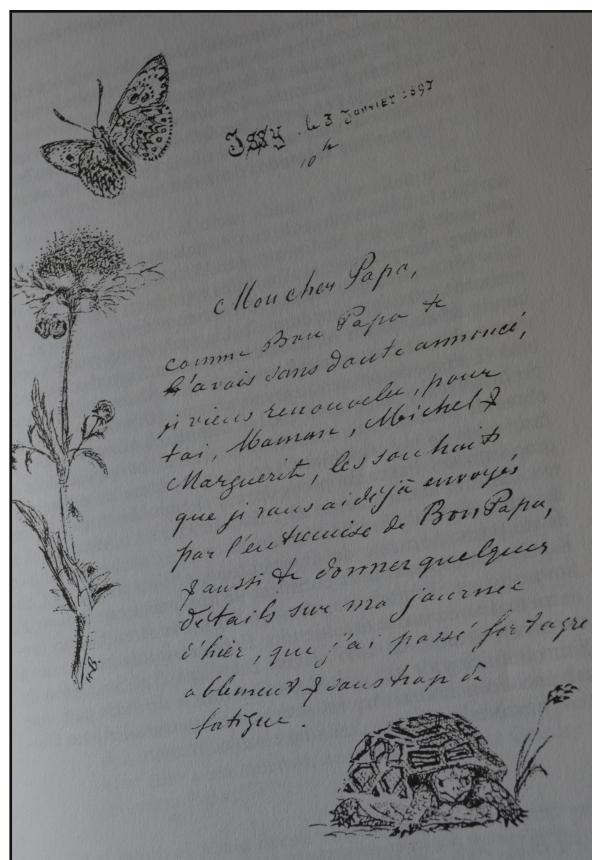 Issy, le 3 Janvier 1897
10 h
Mon cher Papa,
comme Bon Papa te
l'avais sans doute annoncé,
je viens renouveler, pour
toi, Maman, Michel &
Marguerite, les souhaits
que je vous ai déjà envoyés
par l'entremise de Bon Papa,
& aussi te donner quelques
détails sur ma journée
d'hier, que j'ai passé fort agré
ablement & sans trop de
fatigue.